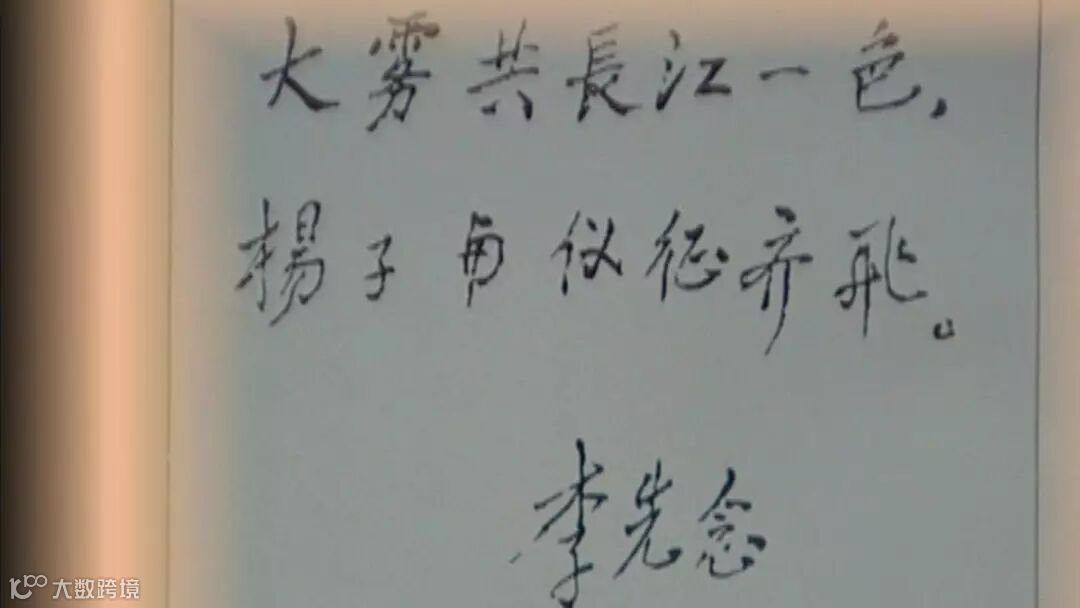 大雾共長江一色,
揚子与仪征齐飛。
李先念
大数跨境